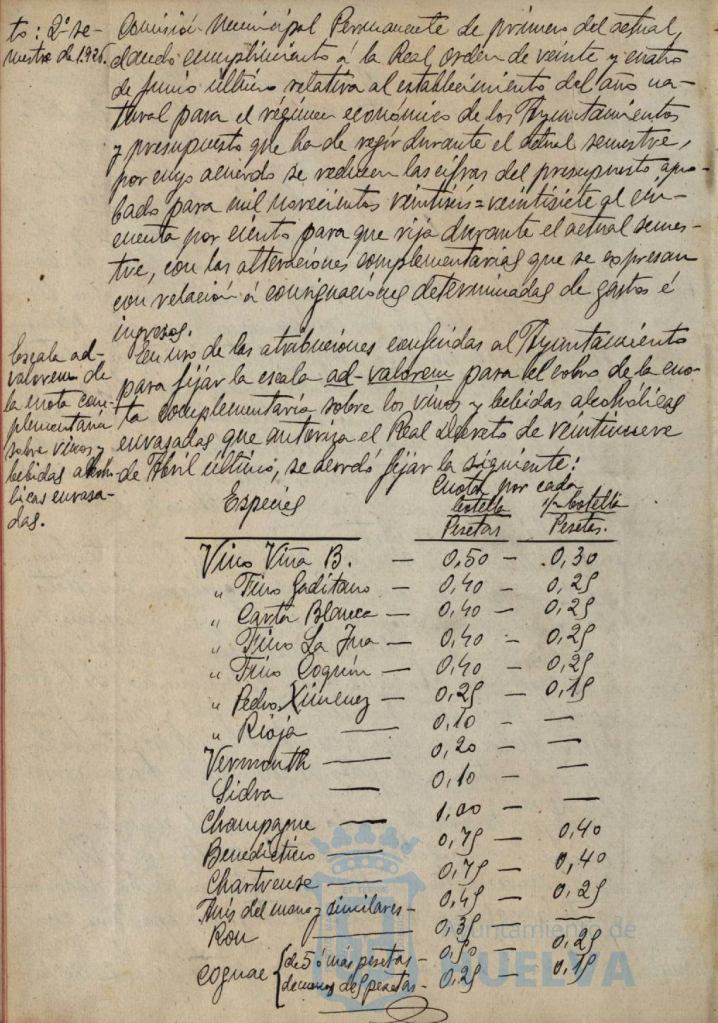 to: 2º se-
mestre de 1.926.
Comisión Municipal Permanente de primero del actual,
dando cumplimiento á la Real orden de veinte y cuatro
de Junio último relativa al establecimiento del año na-
tural para el régimen económico de los Ayuntamientos
y presupuesto que ha de regir durante el actual semestre,
por cuyo acuerdo se reducen las cifras del presupuesto apro-
bado para mil novecientos veintiseis=veintisiete al cin-
cuenta por ciento para que rija durante el actual semes-
tre, con las alteraciones complementarias que se expresan
con relación á consignaciones determinadas de gastos é
ingresos.
Escala ad-
valorem de
la cuota com-
plementaria
sobre vinos y
bebidas alcohó-
licas envasa-
das.
En uso de las atribuciones conferidas al Ayuntamiento
para fijar la escala ad-valorem para el cobro de la cuo-
ta complementaria sobre los vinos y bebidas alcohólicas
envasadas que autoriza el Real Decreto de veintinueve
de Abril último, se acordó fijar la siguiente:
Cuota por cada
Especies botella ½ botella
Pesetas Pesetas.
Vino Viña B. — 0,50 — 0,30
" Fino Gaditano — 0,40 — 0,25
" Carta Blanca — 0,40 — 0,25
" Fino La Ina — 0,40 — 0,25
" Fino Coquin — 0,40 — 0,25
" Pedro Ximenez — 0,25 — 0,15
" Rioja — 0,10 — —
Vermouth — 0,20 — —
Sidra — 0,10 — —
Champagne — 1,00 — —
Benedictino — 0,75 — 0,40
Chartreuse — 0,75 — 0,40
Anis del mono y similares — 0,45 — 0,25
Ron — 0,35 —
Cognac { de 5 ó más pesetas — 0,50 — 0,25
de menos de 5 pesetas — 0,25 — 0,15
Ayuntamiento de
HUELVA